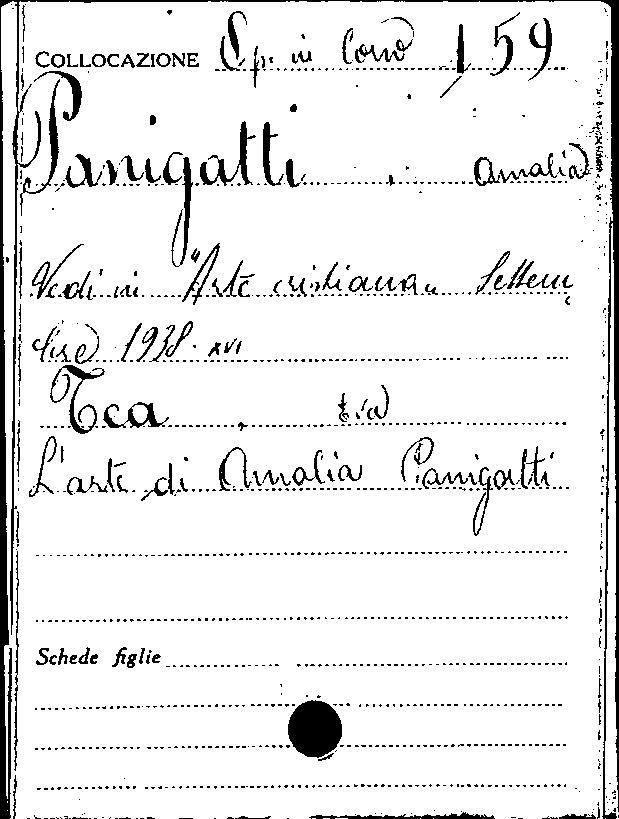 COLLOCAZIONE Op. in Corso 159
Panigatti, Amalia
Vedi in "Arte cristiana" Settem
bre 1938. XVI
Tea, Eva
L'arte di Amalia Panigatti
Schede figlie